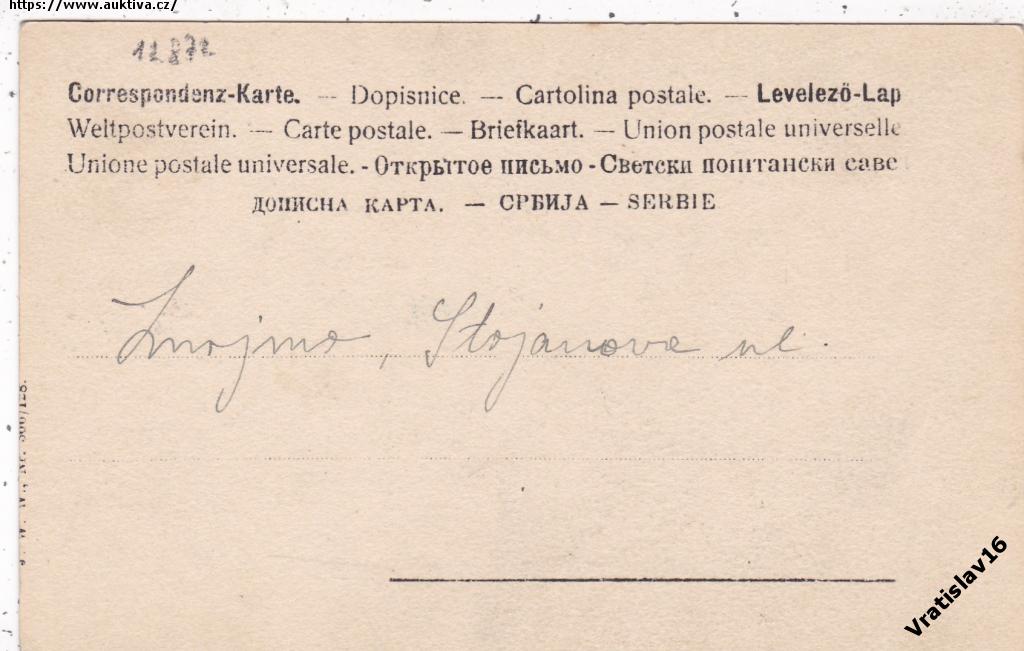 https://www.auktiva.cz/
12872
Correspondenz-Karte. — Dopisnice. — Cartolina postale. — Levelező-Lap
Weltpostverein. — Carte postale. — Briefkaart. — Union postale universelle
Unione postale universale. - Открытое письмо - Светски поштански савс
ДОПИСНА КАРТА. — СРБИЈА — SERBIE
Znojmo, Stojanova ul.
Nr. 500/128.
Vratislav16